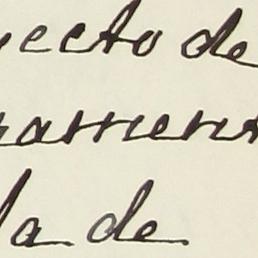 yecto de
rament
la de